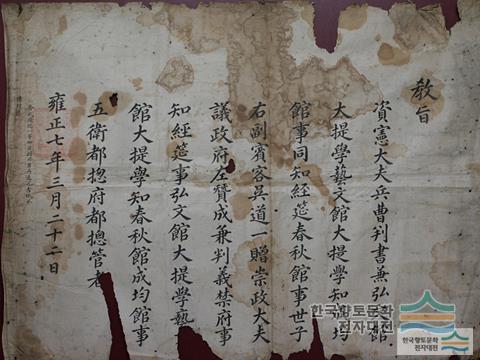 敎旨
資憲大夫兵曹判書兼弘文館
大提學藝文館大提學知
均
館事同知經筵春秋館事世子
右副賓客吳道一贈崇政大夫
議政府左贊成兼判義禁府事
知經筵事弘文館大提學藝
文
館大提學知春秋館成均館事
五衛都摠府都摠管者
雍正七年三月二十二日
한국향토문화
전자대전
한국향토문화
전자대전